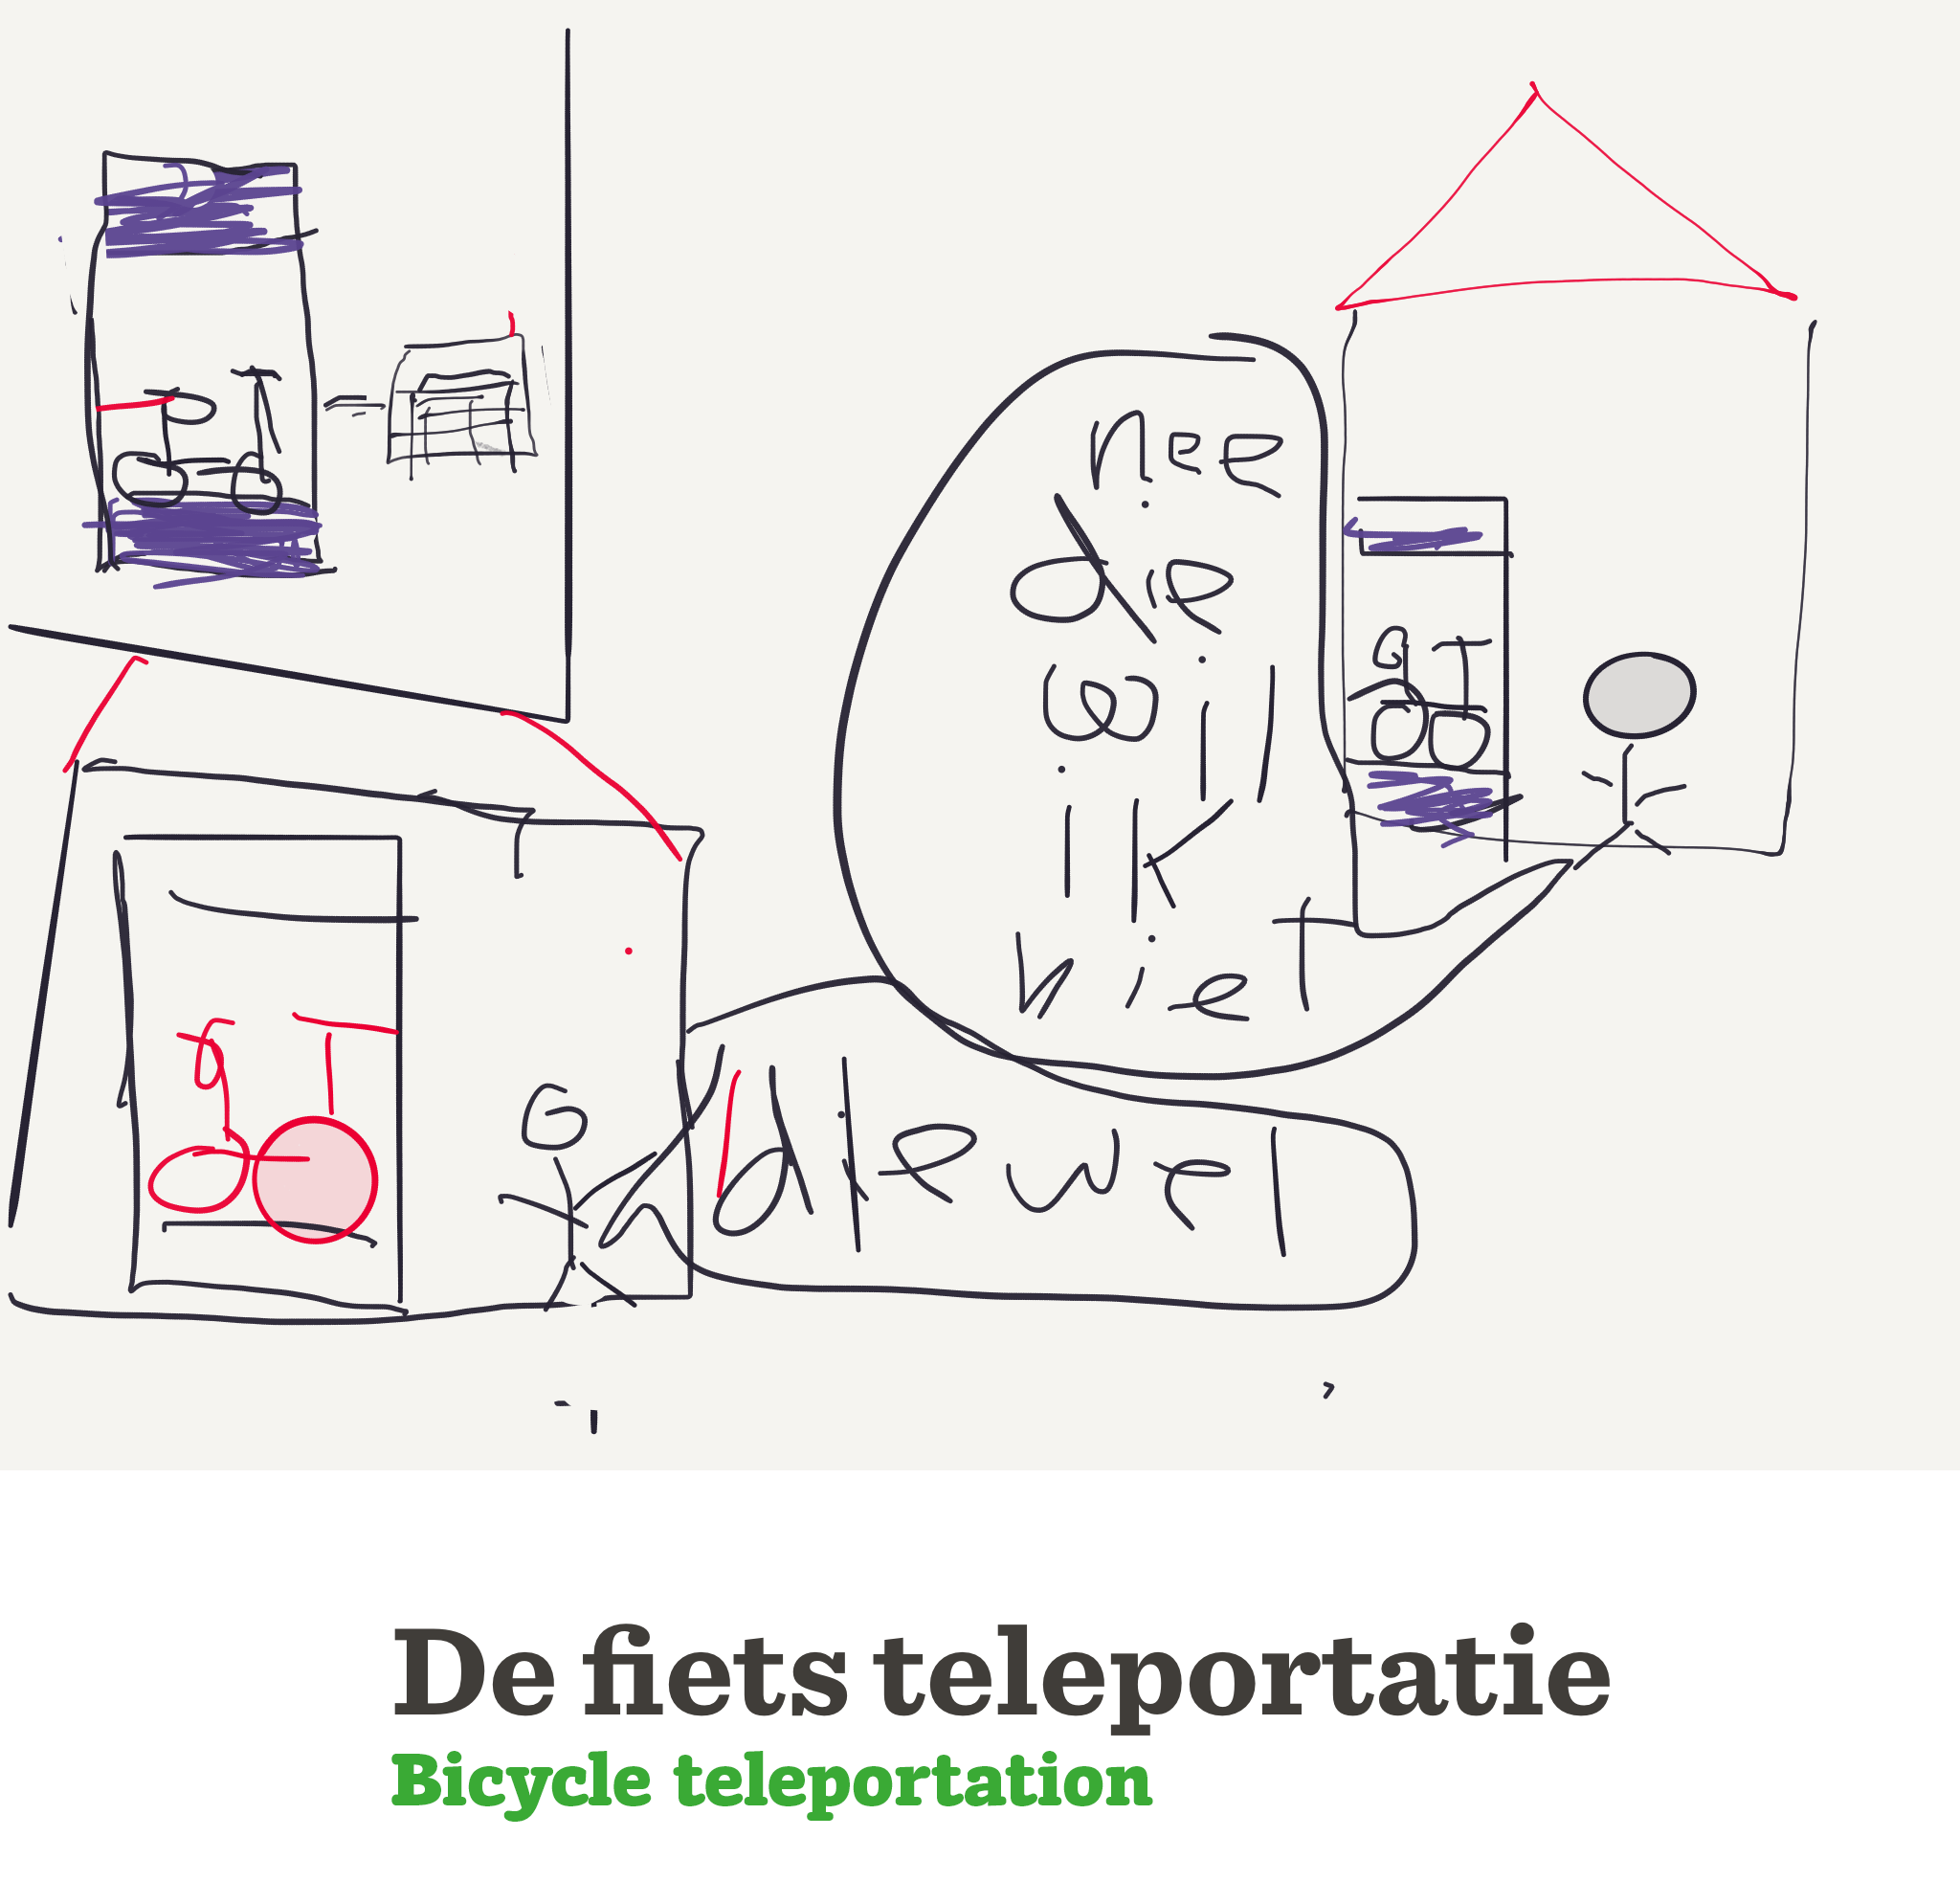 nee
die
wil
ik
niet
die wel
De fiets teleportatie
Bicycle teleportation